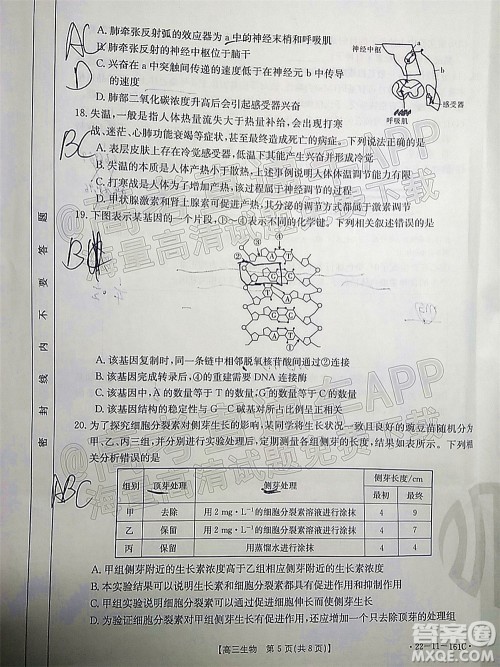 A. 肺牵张反射弧的效应器为 a 中的神经末梢和呼吸肌
B. 肺牵张反射的神经中枢位于脑干
C. 兴奋在 a 中突触间传递的速度低于在神经元 b 中传导
的速度
D. 肺部二氧化碳浓度升高后会引起感受器兴奋
神经中枢
a
b
感受器
呼吸肌
AC
D
18. 失温,一般是指人体热量流失大于热量补给,会出现打寒
战、迷茫、心肺功能衰竭等症状,甚至最终造成死亡的病症。下列说法正确的是
BC
A. 表层皮肤上存在冷觉感受器,低温下其能产生兴奋并形成冷觉
B. 失温的本质是人体产热小于散热,人体的产热和散热主要通过体液调节
C. 打寒战是人体为了增加产热,该过程属于神经调节的过程
D. 甲状腺激素和肾上腺素可促进产热,其分泌的调节方式都属于激素调节
19. 下图表示某基因的一个片段,①~④表示不同的化学键。下列相关叙述错误的是
B
A. 该基因复制时,同一条链中相邻脱氧核苷酸间通过②连接
B. 该基因完成转录后,④的重建需要 DNA 连接酶
C. 该基因彻底水解后,①和③均会发生断裂
D. 该基因的稳定性与 G—C 碱基对所占比例有关
20. 为了探究细胞分裂素对侧芽生长的影响,某同学将生长状况一致且良好的豌豆苗随机分为
甲、乙、丙三组,并分别进行实验处理,定期测量各组侧芽的长度,结果如表所示。下列相
关分析错误的是
ABC
组别 顶芽处理 侧芽处理 侧芽长度/cm
最初 最终
甲 去除 用 2 mg·L⁻¹的细胞分裂素溶液进行涂抹 4 9
乙 保留 用 2 mg·L⁻¹的细胞分裂素溶液进行涂抹 4 7
丙 保留 用蒸馏水进行涂抹 4 4
A. 甲组侧芽附近的生长素浓度高于丙组侧芽附近的生长素浓度
B. 本实验结果可以表明生长素和细胞分裂素都具有促进和抑制作用
C. 本实验结果可以说明生长素和细胞分裂素具有协同促进作用
D. 为了证明细胞分裂素的促进作用,还应增加一个只去除了顶芽的对照处理组
【高三生物 第 5 页(共 8 页)】
·22-11-161C·
密 封 线 内 不 要 答 题